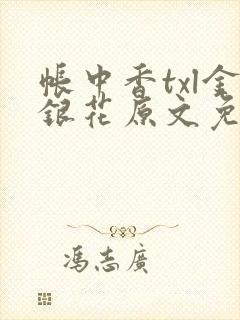 帳中香txl金
銀花原文免
馮志廣